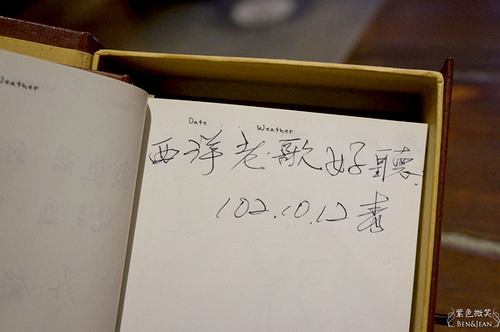 eather
Date Weather
西洋老歌好聽.
102.10.12
紫色微笑
BEN&JEAN